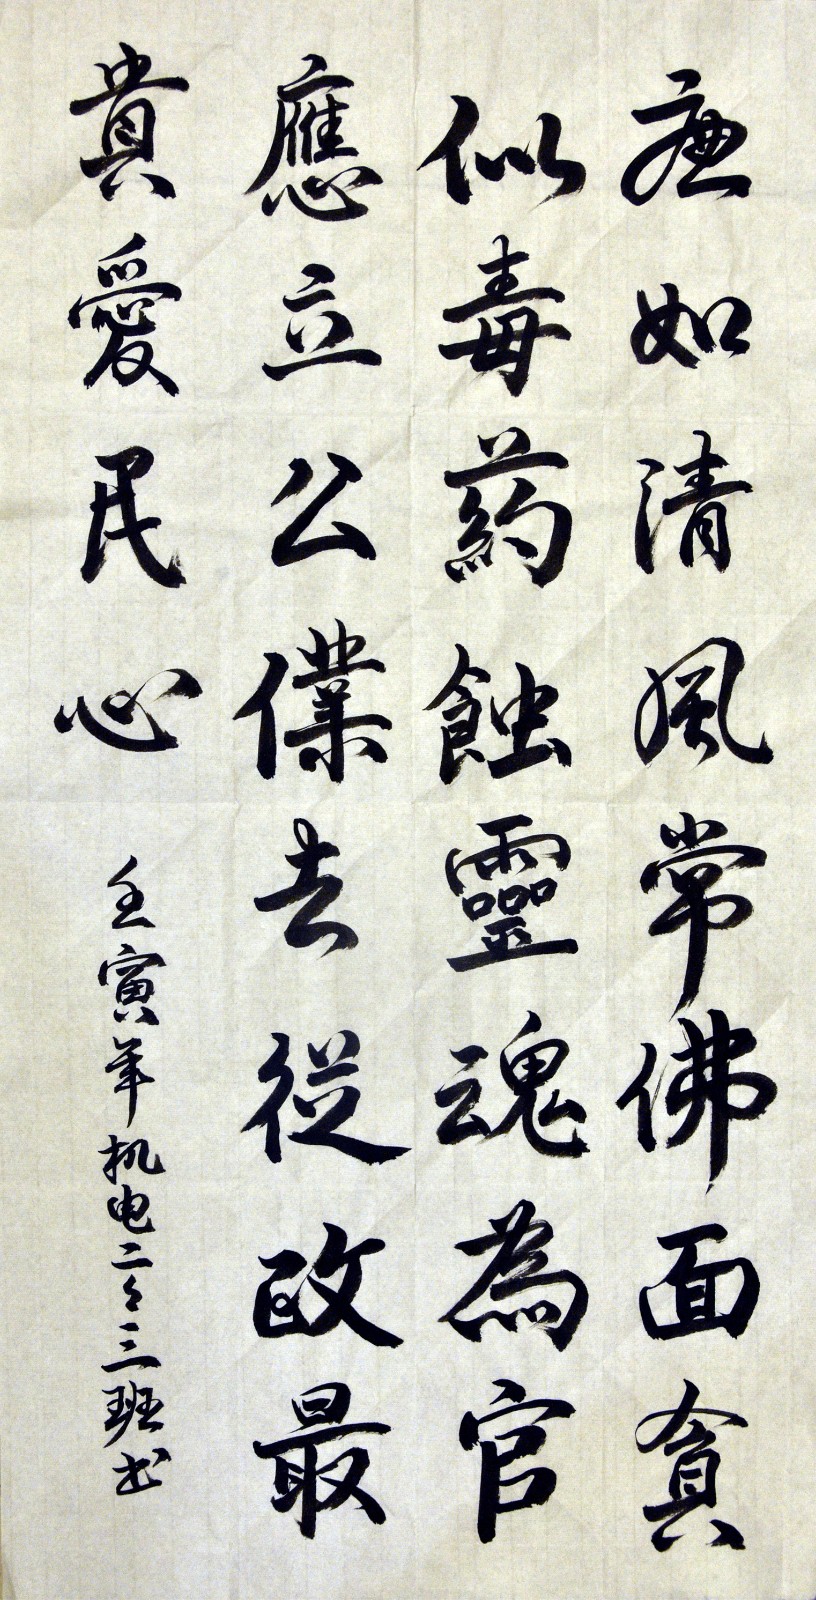 廉如清風常佛面貪
似毒药蝕靈魂為官
應立公僕去從政最
貴愛民心
壬寅年机电二々三班书